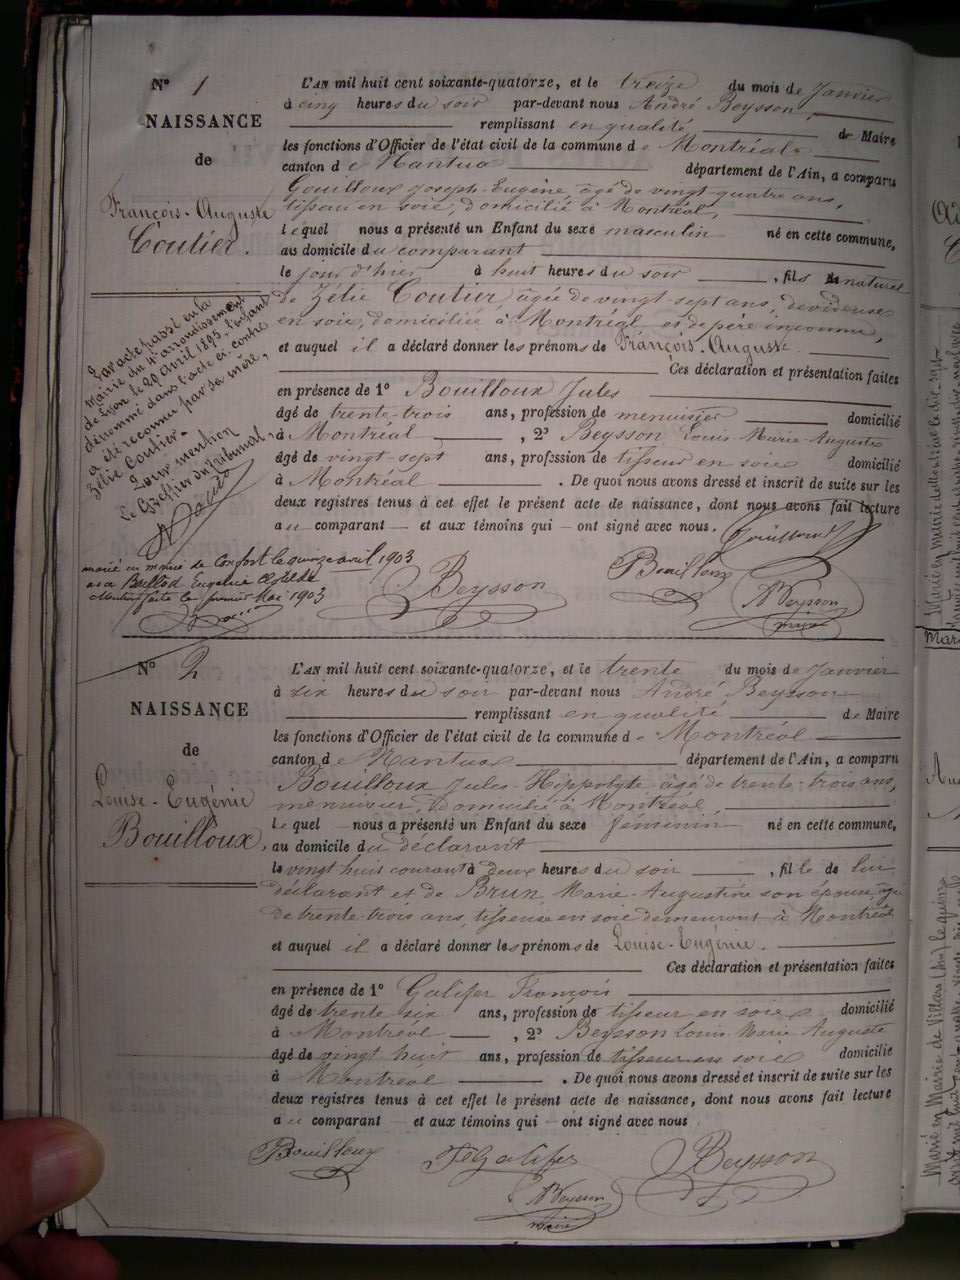 N° 1
NAISSANCE
de
François-Auguste
Coutier.
L'AN mil huit cent soixante-quatorze, et le treize du mois de Janvier
à cinq heures du soir par-devant nous André Beysson,
remplissant en qualité de Maire
les fonctions d'Officier de l'état civil de la commune de Montréal
canton de Nantua département de l'Ain, a comparu
Gouilloux Joseph-Eugène, âgé de vingt-quatre ans,
tisseur en soie, domicilié à Montréal,
lequel nous a présenté un Enfant du sexe masculin né en cette commune,
au domicile du comparant
le jour d'hier à huit heures du soir, fils naturel
de Zélie Coutier, âgée de vingt-sept ans, dévideuse
en soie, domiciliée à Montréal et de père inconnu,
et auquel il a déclaré donner les prénoms de François-Auguste.
Ces déclaration et présentation faites
en présence de 1° Bouilloux Jules
âgé de trente-trois ans, profession de menuisier domicilié
à Montréal, 2° Beysson Louis-Marie-Auguste
âgé de vingt-sept ans, profession de tisseur en soie domicilié
à Montréal. De quoi nous avons dressé et inscrit de suite sur les
deux registres tenus à cet effet le présent acte de naissance, dont nous avons fait lecture
au comparant et aux témoins qui ont signé avec nous.
Gouilloux
Beysson
Bouilloux
A Beysson
maire
Par acte passé en la
Mairie du 4e arrondissement
de Lyon le 29 Avril 1895, l'enfant
dénommé dans l'acte ci-contre
a été reconnu par sa mère,
Zélie Coutier.
Pour mention
Le Greffier du Tribunal
marié en mairie de Confort le quinze avril 1903
avec Baillod Eugénie Clotilde
Mention faite le premier Mai 1903
N° 2
NAISSANCE
de
Louise-Eugénie
Bouilloux,
L'AN mil huit cent soixante-quatorze, et le trente du mois de Janvier
à six heures du soir par-devant nous André Beysson
remplissant en qualité de Maire
les fonctions d'Officier de l'état civil de la commune de Montréal
canton de Nantua département de l'Ain, a comparu
Bouilloux Jules-Hippolyte âgé de trente-trois ans,
menuisier, domicilié à Montréal
lequel nous a présenté un Enfant du sexe féminin né en cette commune,
au domicile du déclarant
le vingt huit courant à deux heures du soir, fille de lui
déclarant et de Brun Marie-Augustine son épouse âgée
de trente-trois ans, tisseuse en soie demeurant à Montréal
et auquel il a déclaré donner les prénoms de Louise-Eugénie.
Ces déclaration et présentation faites
en présence de 1° Galifer François
âgé de trente six ans, profession de tisseur en soie domicilié
à Montréal, 2° Beysson Louis Marie Auguste
âgé de vingt huit ans, profession de tisseur en soie domicilié
à Montréal. De quoi nous avons dressé et inscrit de suite sur les
deux registres tenus à cet effet le présent acte de naissance, dont nous avons fait lecture
au comparant et aux témoins qui ont signé avec nous
Bouilloux
F Galifer
Beysson
A Beysson
maire